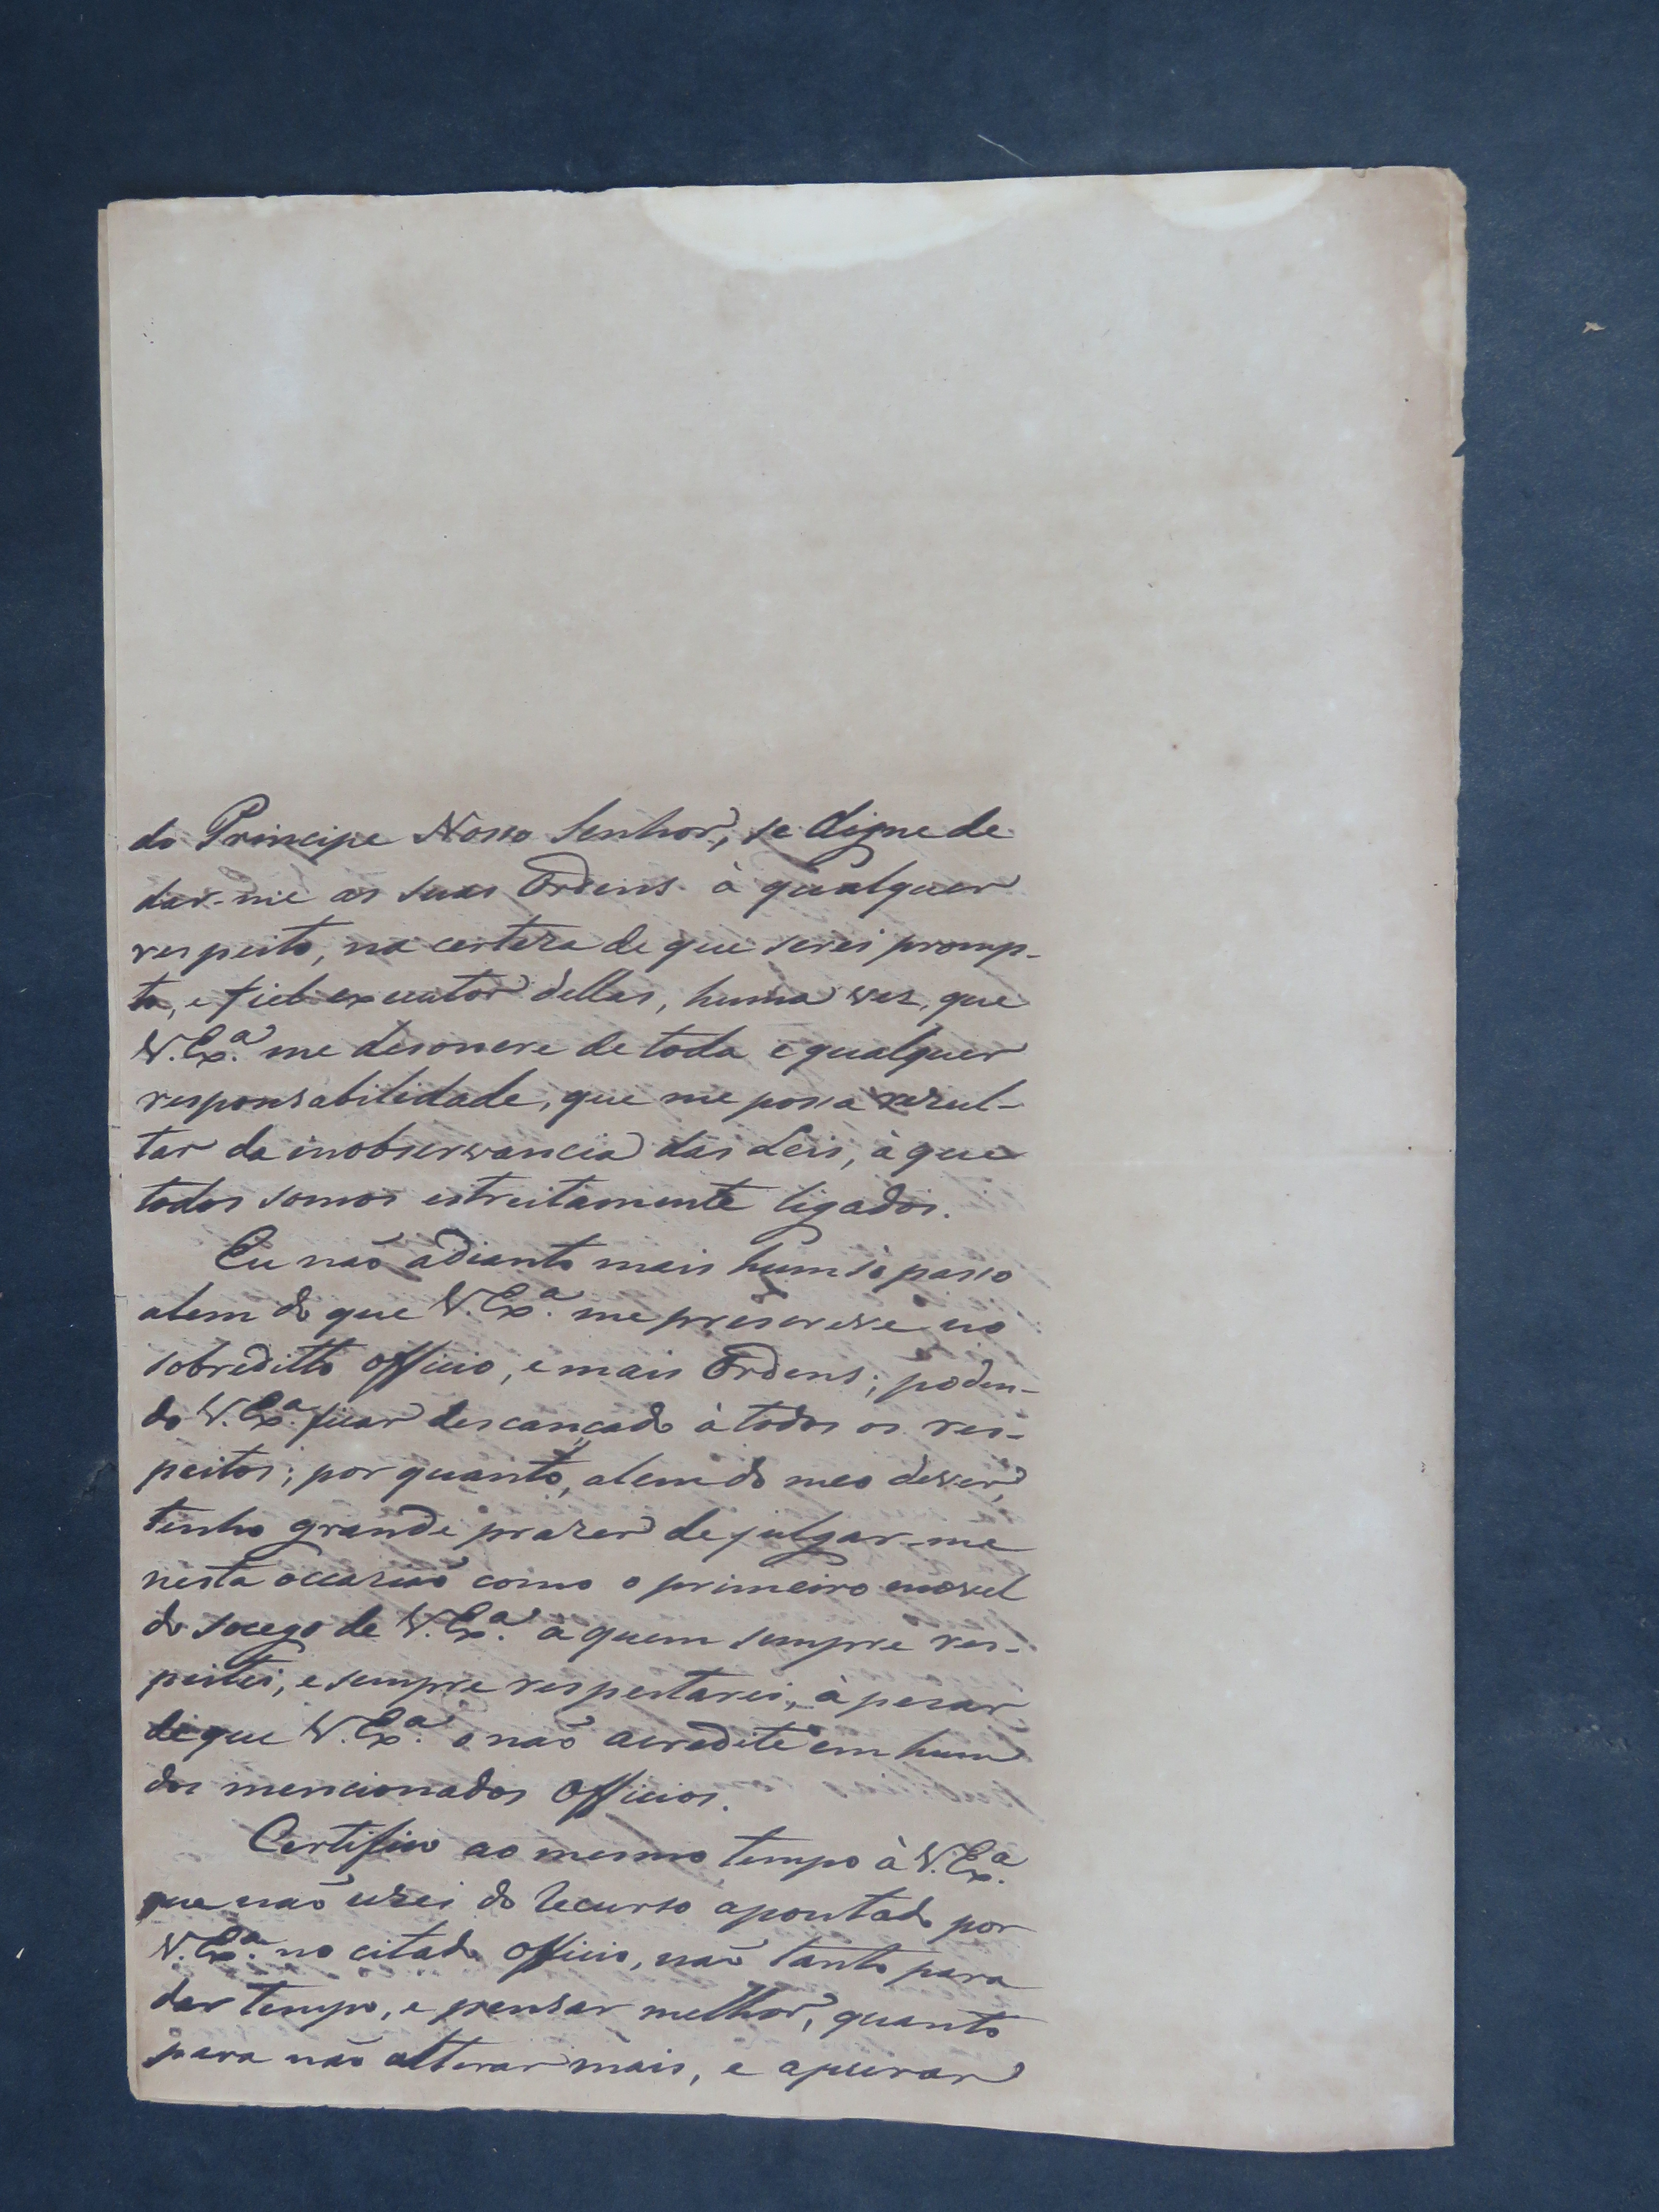 do Principe Nosso Senhor, se digne de
dar-me as suas Ordens à qualquer
respeito, na certeza de que serei promp-
to, e fiel executor dellas, huma vez, que
V. Ex.ª me desonere de toda e qualquer
responsabilidade, que me possa rezul-
tar da inobservancia das Leis, à que
todos somos estreitamente ligados.
Eu não adianto mais hum só passo
alem do que V. Ex.ª me prescreve no
sobreditto officio, e mais Ordens; poden-
do V. Ex.ª ficar descançado à todos os res-
peitos; por quanto, alem do meo dever,
tenho grande prazer de julgar-me
nesta occasião como o primeiro movel
do socego de V. Ex.ª à quem sempre res-
peitei, e sempre respeitarei, à pezar
de que V. Ex.ª o não acredite em hum
dos mencionados Officios.
Certifico ao mesmo tempo à V. Ex.ª
que não uzei do recurso apontado por
V. Ex.ª no citado Officio, não tanto para
dar tempo, e pensar melhor, quanto
para não alterar mais, e apurar